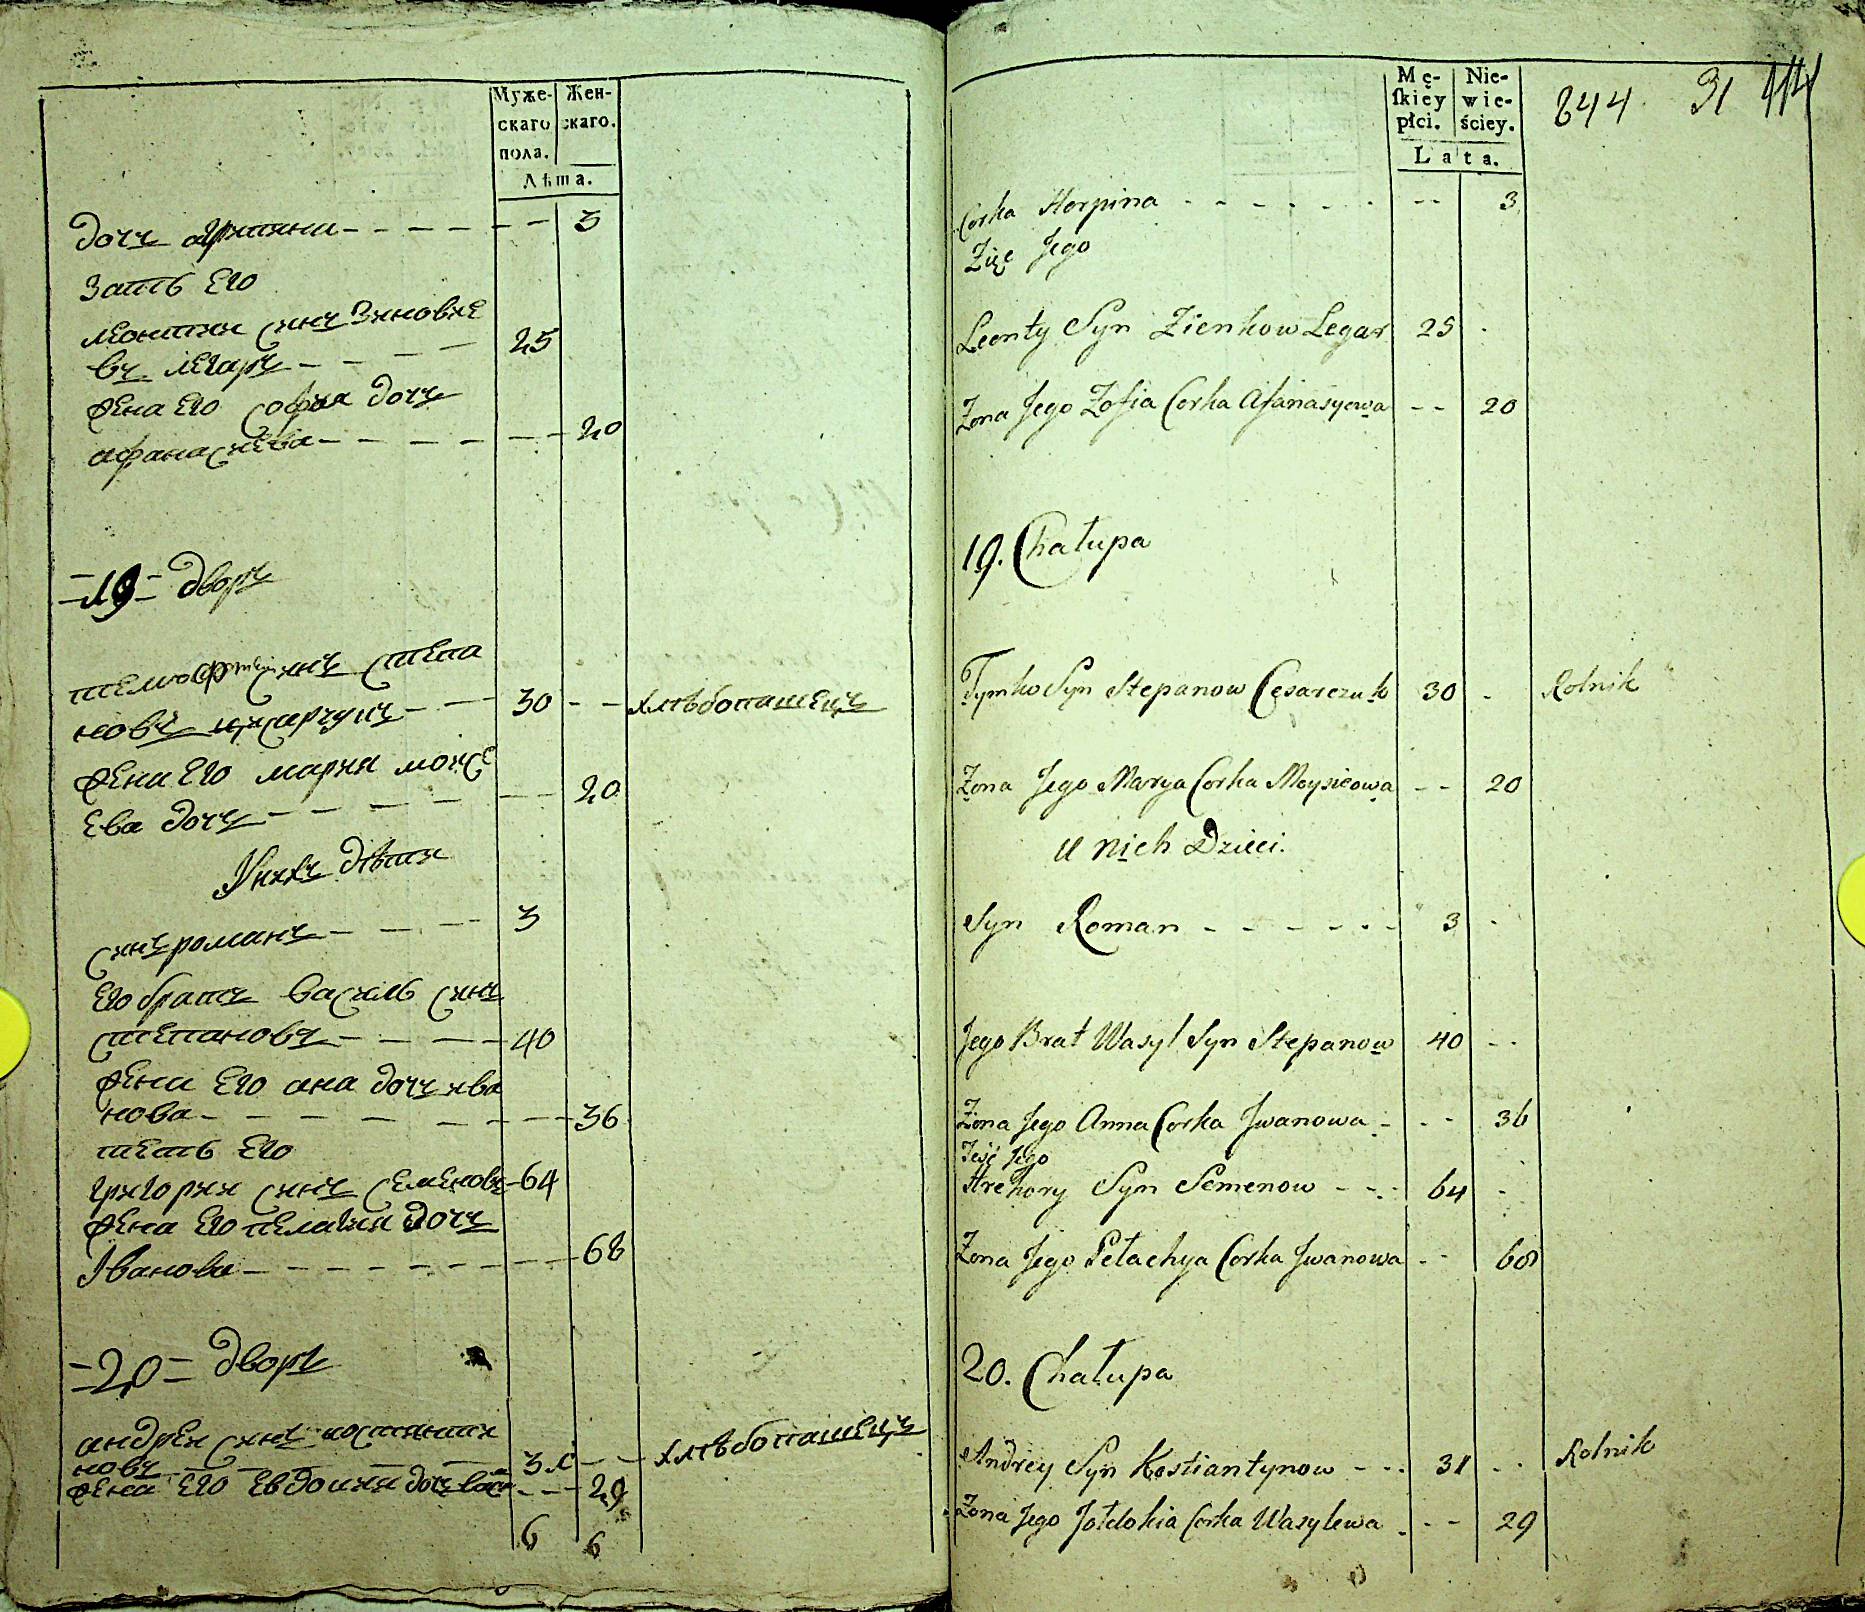 Муже-
скаго
пола.
Жен-
скаго.
Лѣта.
дочъ 3
зать его
леонтии синъ зиновіе
въ легаръ 25
жена его софия дочъ
афанасиева 20
=19= дворъ
синъ степа
новъ 30 хлѣбопашецъ
жена его мария моисе
ева дочъ 20
У нихъ дѣти
синъ романъ 3
его братъ василь синъ
степановъ 40
жена его ана дочъ ива
нова 36
тесть его
григории синъ семеновъ 64
жена его пелагия дочъ
Іванова 68
=20= дворъ
андреи синъ костянти
новъ 31 хлѣбопашецъ
жена его евдокия дочъ 29
6 6
Mę-
ſkiey
płci.
Nie-
wie-
ściey.
Lata.
644 31
Corka Horpina 3
Zięć Jego
Leonty Syn Zienkow Legar 25
Zona Jego Zofia Corka Afanasyowa 20
19. Chałupa
Tymko Syn Stepanow Cesarczuk 30 Rolnik
Zona Jego Marya Corka Moysieowa 20
U nich Dzieci.
Syn Roman 3
Jego Brat Wasyl Syn Stepanow 40
Zona Jego Anna Corka Jwanowa 36
Jego
Hrehory Syn Semenow 64
Zona Jego Pełachya Corka Jwanowa 68
20. Chałupa
Andrey Syn Kostiantynow 31 Rolnik
Zona Jego Jołdokia Corka Wasylewa 29